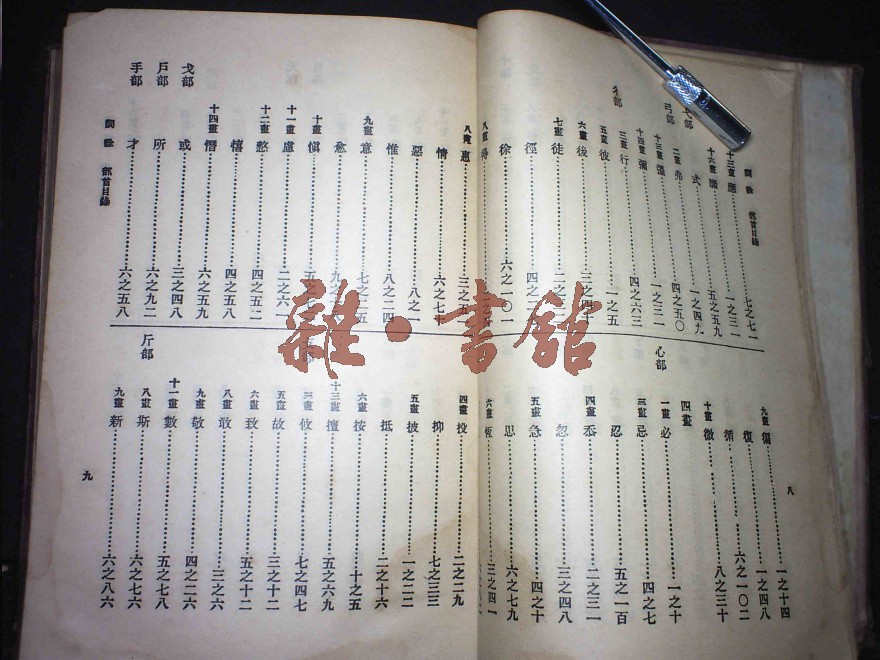 詞詮 部首目錄
十三畫 七之七一
十六畫 一之三一
弋部 式 五之五九
弓部 二畫 弗 一之四九
十三畫 彊 四之五〇
十四畫 彌 一之三一
彳部 三畫 行 四之六三
五畫 彼 一之五
六畫 後 三之四
七畫 徒 二之
徑 四之二
徐 六之一〇一
八畫 得
九畫 徧 一之十四
復 一之四八
循 六之一〇二
十畫 微 八之三十
心部 四畫
一畫 必 一之十
三畫 忌 四之七
忍 五之一百
四畫 忝 二之三一
忽 三之四八
五畫 急 四之十
思 六之七九
六畫 恆 三之四一
八
八畫 惠 三之五
情 六之七
惡 八之一
惟 八之二四
九畫 意 七之二五
愈 九之
十畫 慎 五之七
十一畫 慮 二之六一
十二畫 憖 四之五二
憘 四之五八
十四畫 憯 六之五九
戈部 或 三之四八
戶部 所 六之九二
手部 才 六之五八
詞詮 部首目錄
四畫 投 二之二九
抑 七之三三
五畫 披 一之二二
抵 二之十六
六畫 按 十之五
十三畫 擅 五之六九
三畫 攸 七之四七
五畫 故 三之十二
六畫 致 五之十二
八畫 敢 三之六
九畫 敬 四之二六
十一畫 數 五之七八
斤部 八畫 斯 六之七六
九畫 新 六之八六
九
雜·書館